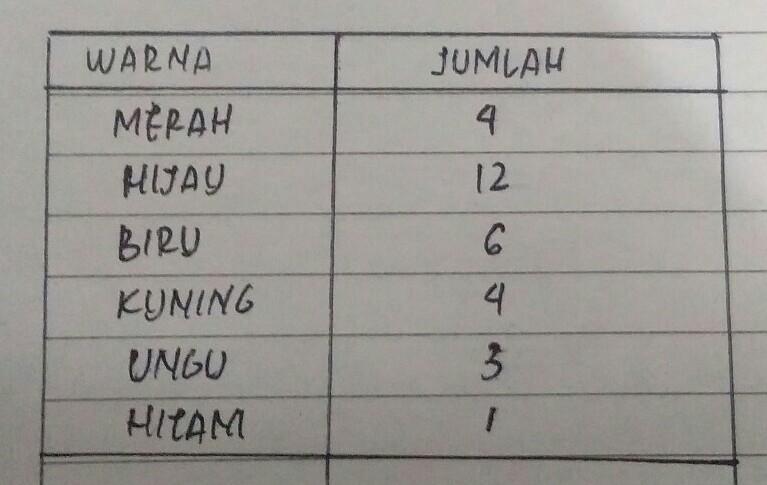 WARNA JUMLAH
MERAH 4
HIJAU 12
BIRU 6
KUNING 4
UNGU 3
HITAM 1